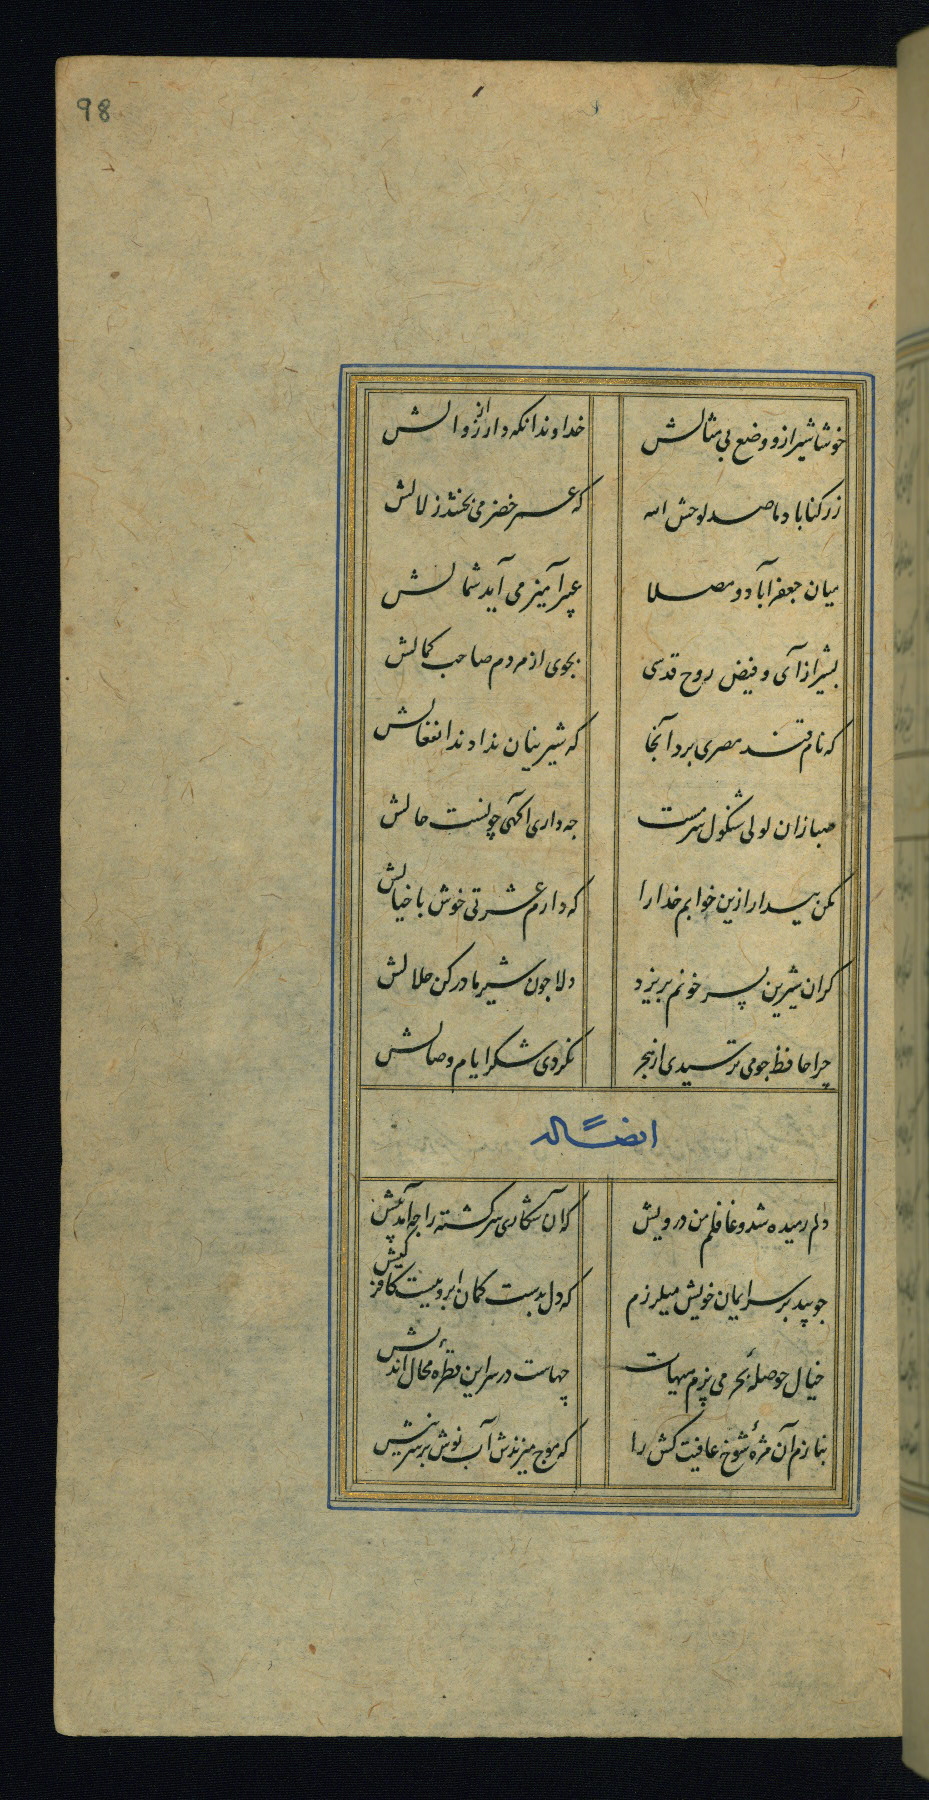 98
خوشا شیراز و وضع بی مثالش خداوندا نکه دار از زوالش
ز رکناباد ما صد لوحش الله که عمر خضر می بخشد زلالش
میان جعفر آباد و مصلا عبیر آمیز می آید شمالش
بشیراز آی و فیض روح قدسی بجوی از مردم صاحب کمالش
که نام قند مصری برد آنجا که شیرینان ندادند انفعالش
صبا زان لولی شنکول سرمست چه داری اکهی چونست حالش
مکن بیدار ازین خوابم خدا را که دارم عشرتی خوش با خیالش
کر ان شیرین پسر خونم بریزد دلا جون شیر مادر کن حلالش
چرا حافظ جو می ترسیدی از هجر نکردی شکر ایام وصالش
ایضاً له
دلم رمیده شد و غافلم من درویش که ان شکاری سرکشته را جه آمد پیش
جو بید بر سر ایمان خویش میلرزم که دل بدست کمان ابرویست کافر کیش
خیال حوصلهٔ بحر می پزم هیهات چهاست در سر این قطرهٔ محال اندیش
بنازم آن مژهٔ شوخ عافیت کش را که موج میزندش آب نوش بر سر نیش